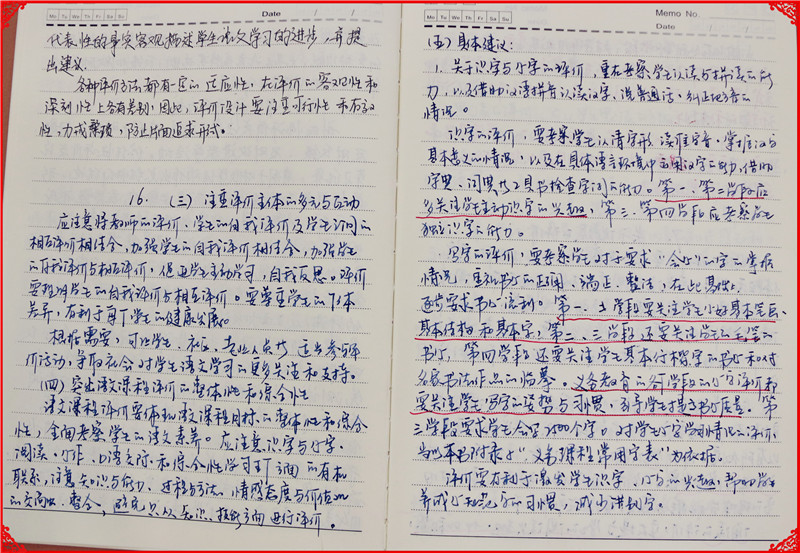 Mo Tu We Th Fr Sa Su
Date / /
代表性的事实客观描述学生语文学习的进步，并提
出建议.
各种评价方法都有一定的适应性，在评价的客观性和
深刻性上各有差别，因此，评价设计要注重可行性和有效
性，力戒繁琐，防止片面追求形式。
16. （三）注重评价主体的多元与互动
应注意将教师的评价、学生的自我评价及学生之间的
相互评价相结合，加强学生的自我评价相结合，加强学生
的自我评价与相互评价，促进学生主动学习，自我反思。评价
要理解学生的自我评价与相互评价。要尊重学生的个体
差异，有利于每个学生的健康发展。
根据需要，可让学生、社区、专业人员等，适当参与评
价活动，争取社会对学生语文学习的更多关注和支持。
（四）突出语文课程评价的整体性和综合性
语文课程评价要体现语文课程目标的整体性和综合
性，全面考察学生的语文素养。应注意识字与写字、
阅读、习作、口语交际和综合性学习五个方面的有机
联系，注意知识与能力、过程与方法、情感态度与价值观
的交融、整合，避免只从知识、技能方面进行评价。
Mo Tu We Th Fr Sa Su
Memo No.
Date / /
（五）具体建议：
1. 关于识字与写字的评价，重在考察学生认读与拼读的能
力，以及借助汉语拼音认读汉字、说普通话、纠正地方音的
情况。
识字的评价，要考察学生认清字形、读准字音、掌握汉字
基本意义的情况，以及在具体语言环境中运用汉字的能力，借助
字典、词典等工具书检查字词的能力。第一、第二学段应
多关注学生主动识字的兴趣，第三、第四学段应考察学生
独立识字的能力。
写字的评价，要考察学生对于要求“会写”的字的掌握
情况，重视书写的正确、端正、整洁，在此基础上，
逐步要求书写流利。第一学段要关注学生写好基本笔画、
基本结构和基本字，第二、三学段还要关注学生的毛笔
书写，第四学段还要关注学生基本行楷字的书写和对
名家书法作品的临摹。义务教育的各个学段的写字评价都
要关注学生写字的姿势与习惯，引导学生提高书写质量。第
三学段要求学生会写2500个字。对学生写字学习情况的评价，
当以本书附录5“义务课程常用字表”为依据。
评价要有利于激发学生识字、写字的兴趣，帮助学生
养成写规范字的习惯，减少错别字。